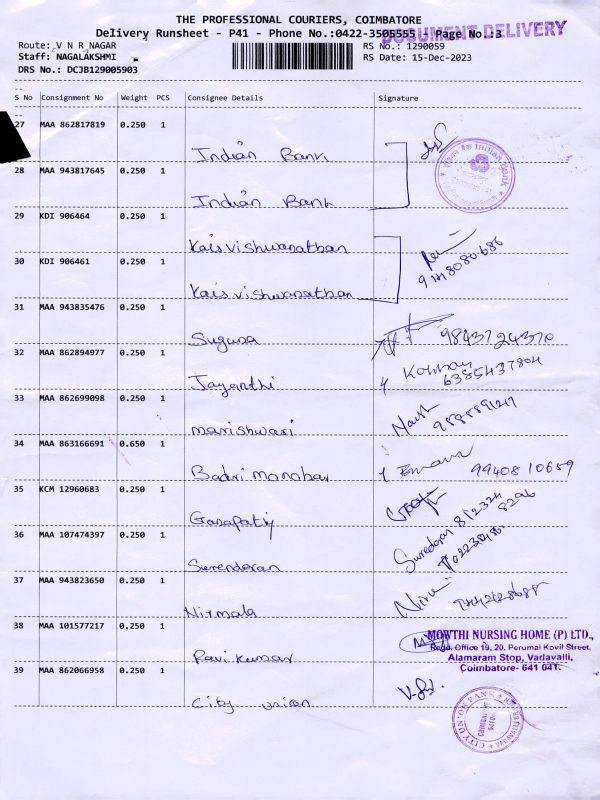 THE PROFESSIONAL COURIERS, COIMBATORE
Delivery Runsheet - P41 - Phone No.:0422-3506555 - Page No.:3
DOCUMENT DELIVERY
Route: V N R NAGAR
RS No.: 1290059
Staff: NAGALAKSHMI
RS Date: 15-Dec-2023
DRS No.: DCJB129005903
S No Consignment No Weight PCS Consignee Details Signature
27 MAA 862817819 0.250 1
Indian Bank
28 MAA 943817645 0.250 1
Indian Bank
29 KDI 906464 0.250 1
Kais vishwanathan
30 KDI 906461 0.250 1
Kais vishwanathan
31 MAA 943835476 0.250 1
Suguna
9843724370
32 MAA 862894977 0.250 1
Jayanthi
6385437804
33 MAA 862699098 0.250 1
marishwari
34 MAA 863166691 0.650 1
Badri manohar
9940810659
35 KCM 12960683 0.250 1
Ganapathy
36 MAA 107474397 0.250 1
Surendaran
37 MAA 943823650 0.250 1
Nirmala
38 MAA 101577217 0.250 1
Ravi kumar
MOWTHI NURSING HOME (P) LTD.,
Regd. Office 19, 20, Perumal Kovil Street,
Alamaram Stop, Vadavalli,
Coimbatore- 641 041.
39 MAA 862066958 0.250 1
City union
CITY UNION BANK